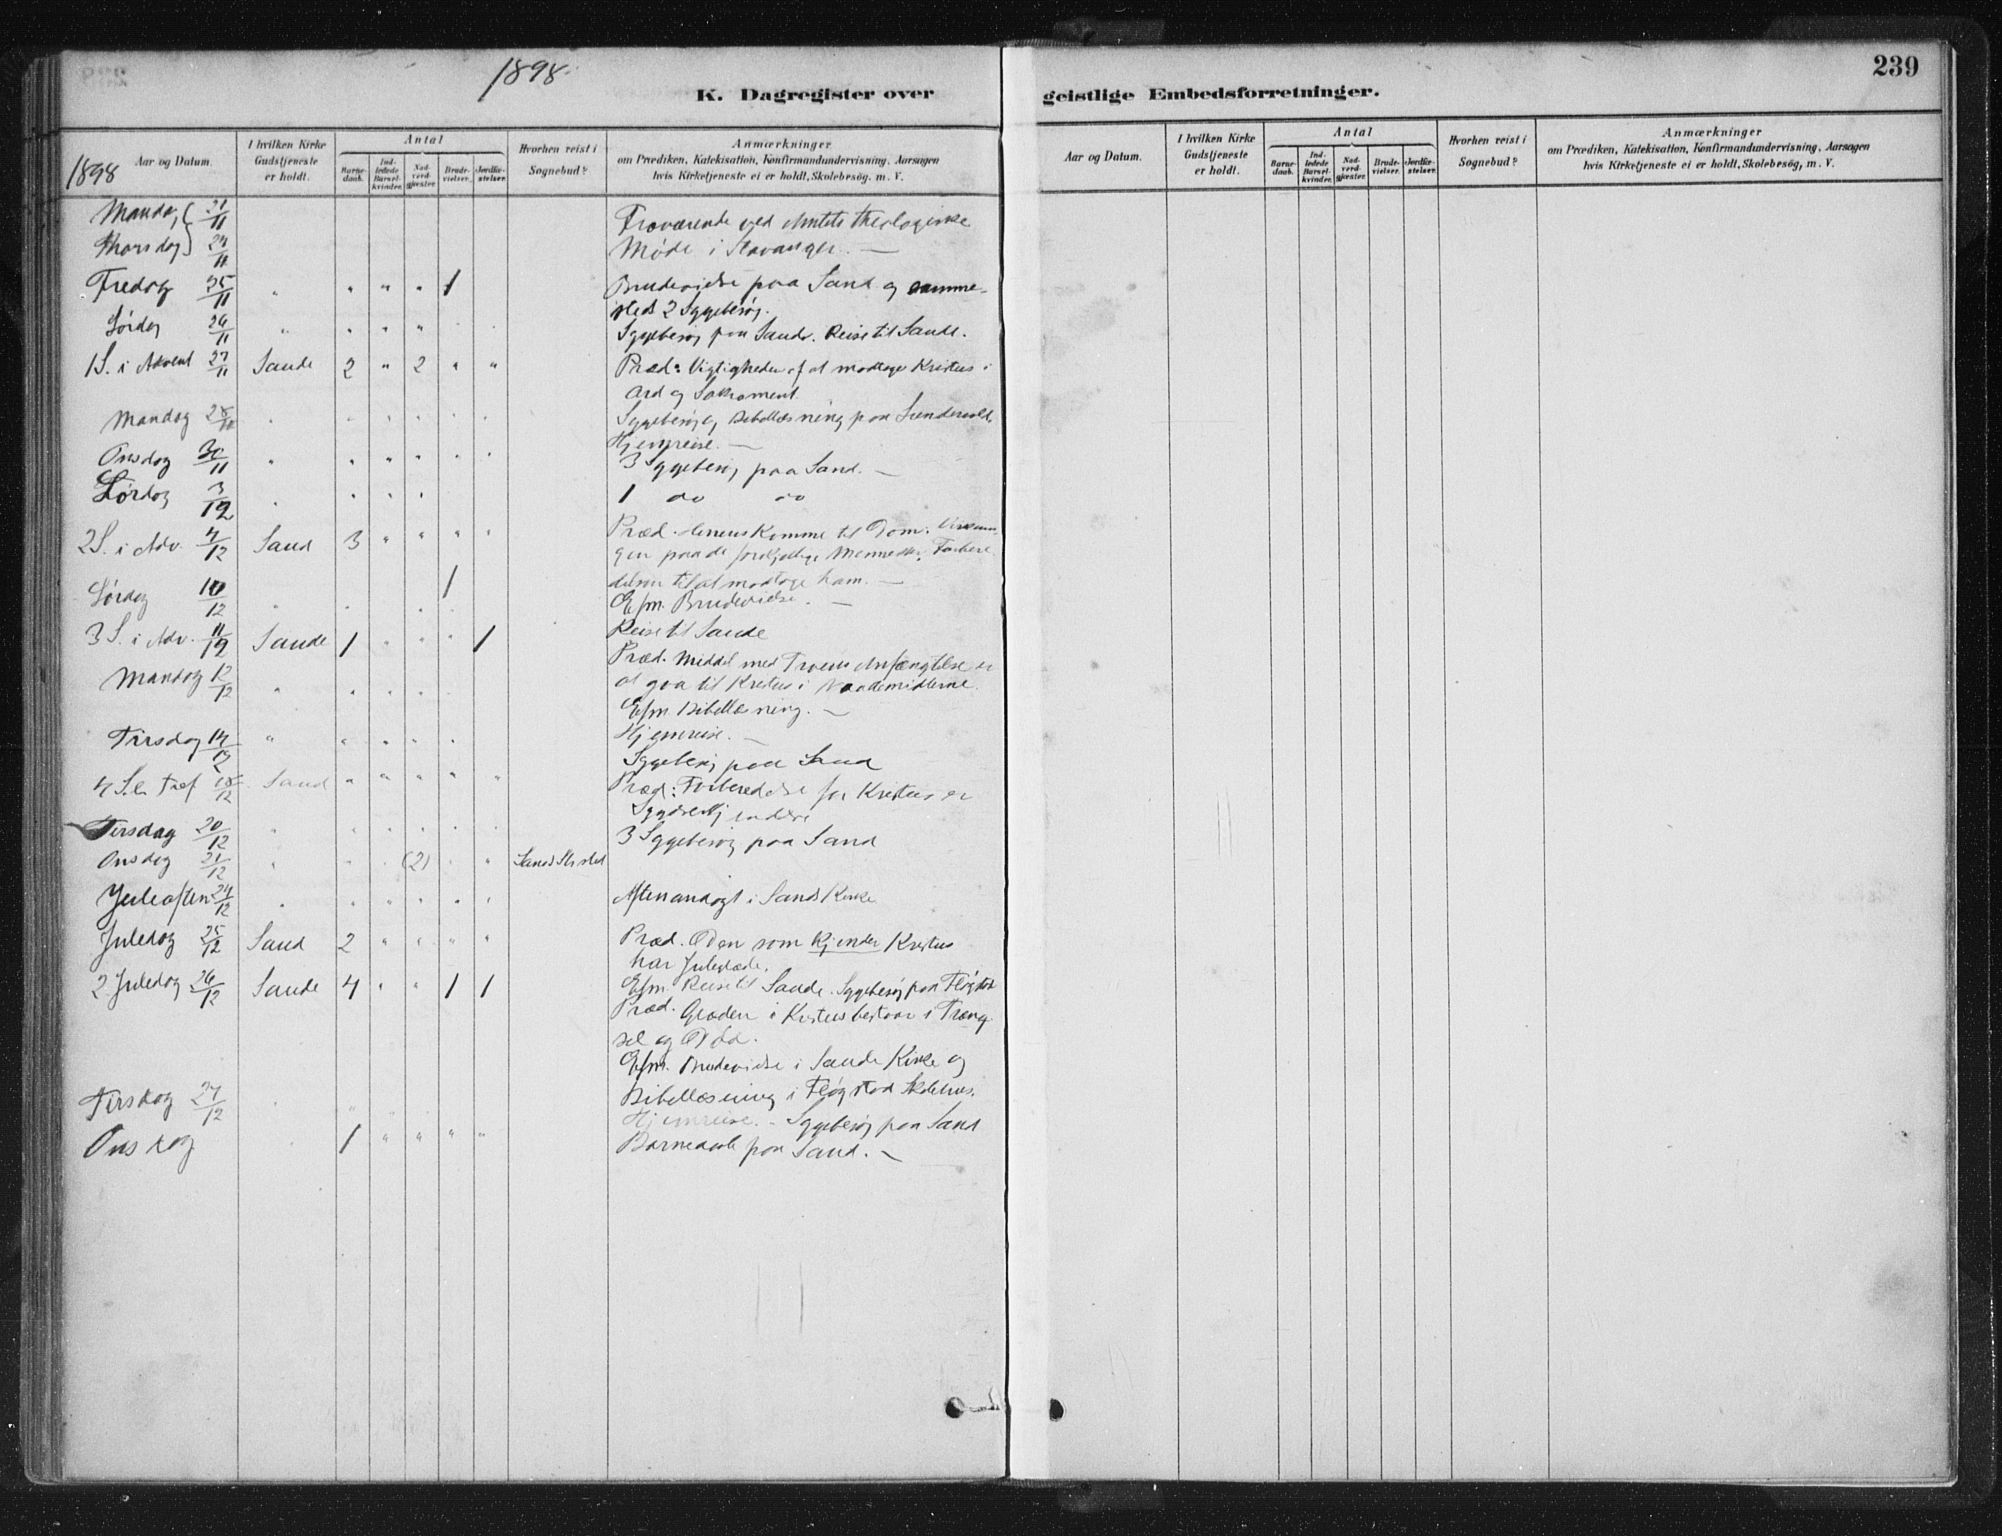 1898
239
K. Dagregister over geistlige Embedsforretninger.
1898 Aar og Datum.
I hvilken Kirke Gudstjeneste er holdt.
Antal
Barnedaab.
Indledede Barselkvinder.
Nadverdgjester.
Brudevielser.
Jordfæstelser.
Hvorhen reist i Sognebud?
Anmærkninger
om Prædiken, Katekisation, Konfirmandundervisning, Aarsagen
hvis Kirketjeneste ei er holdt, Skolebesög, m. V.
Mandag 21/11 Fraværende ved Amtets theologiske
Thorsdag 24/11 Møde i Stavanger. —
Fredag 25/11 " " " " 1 Brudevielse paa Sand og samme-
steds 2 Sygebesøg.
Lørdag 26/11 " " " " Sygebesøg paa Sand. Reise til Sande.
1 S. i Advent 27/11 Sande 2 " 2 " " Præd: Vigtigheden af at modtage Kristus i
Ord og Sakrament
Mandag 28/11 Sygebesøg, Bibellæsning paa
Hjemreise. —
Onsdag 30/11 " " " " " " 3 Sygebesøg paa Sand. —
Lørdag 3/12 " " " " 1 do do
2 S. i Adv. 4/12 Sand 3 " " " " Præd. Herrens Komme til Dom.
gen paa de forskjellige Mennesker. Forbere-
delsen til at modtage ham. —
Lørdag 10/12 " " " 1 Efm. Brudevielse. —
3 S. i Adv. 11/12 Sande 1 " " " 1 Reise til Sande
Præd. Middel mod Troens Anfægtelse er
at gaa til Kristus i Naademidlerne.
Mandag 12/12 " " " " Efm. Bibellæsning. —
Hjemreise. —
Tirsdag 14/12 " " " " " Sygebesøg paa Sand
4 S. i 18/12 Sand " " " " " Præd: Forberedelse for Kristus er
Tirsdag 20/12 3 Sygebesøg paa Sand
Onsdag 21/12 " " " (2) " " Sand
Juleaften 24/12 " " " " " " Aftenandagt i Sands Kirke
Juledag 25/12 Sand 2 " " " " Præd. Den som kjender Kristus
har Juleglæde.
2 Juledag 26/12 Sande 4 " " 1 1 Efm. Reise til Sande. Sygebesøg paa Fløgstad
Præd. Glæden i Kristus bestaar i Træng-
sel og Død.
Efm. Brudevielse i Sande Kirke og
Bibellæsning i Fløgstad Skolehus.
Tirsdag 27/12 Hjemreise. - Sygebesøg paa Sand
Onsdag 1 " " " " Barnedaab paa Sand. —
Aar og Datum.
I hvilken Kirke Gudstjeneste er holdt.
Antal
Barnedaab.
Indledede Barselkvinder.
Nadverdgjester.
Brudevielser.
Jordfæstelser.
Hvorhen reist i Sognebud?
Anmærkninger
om Prædiken, Katekisation, Konfirmandundervisning, Aarsagen
hvis Kirketjeneste ei er holdt, Skolebesög, m. V.